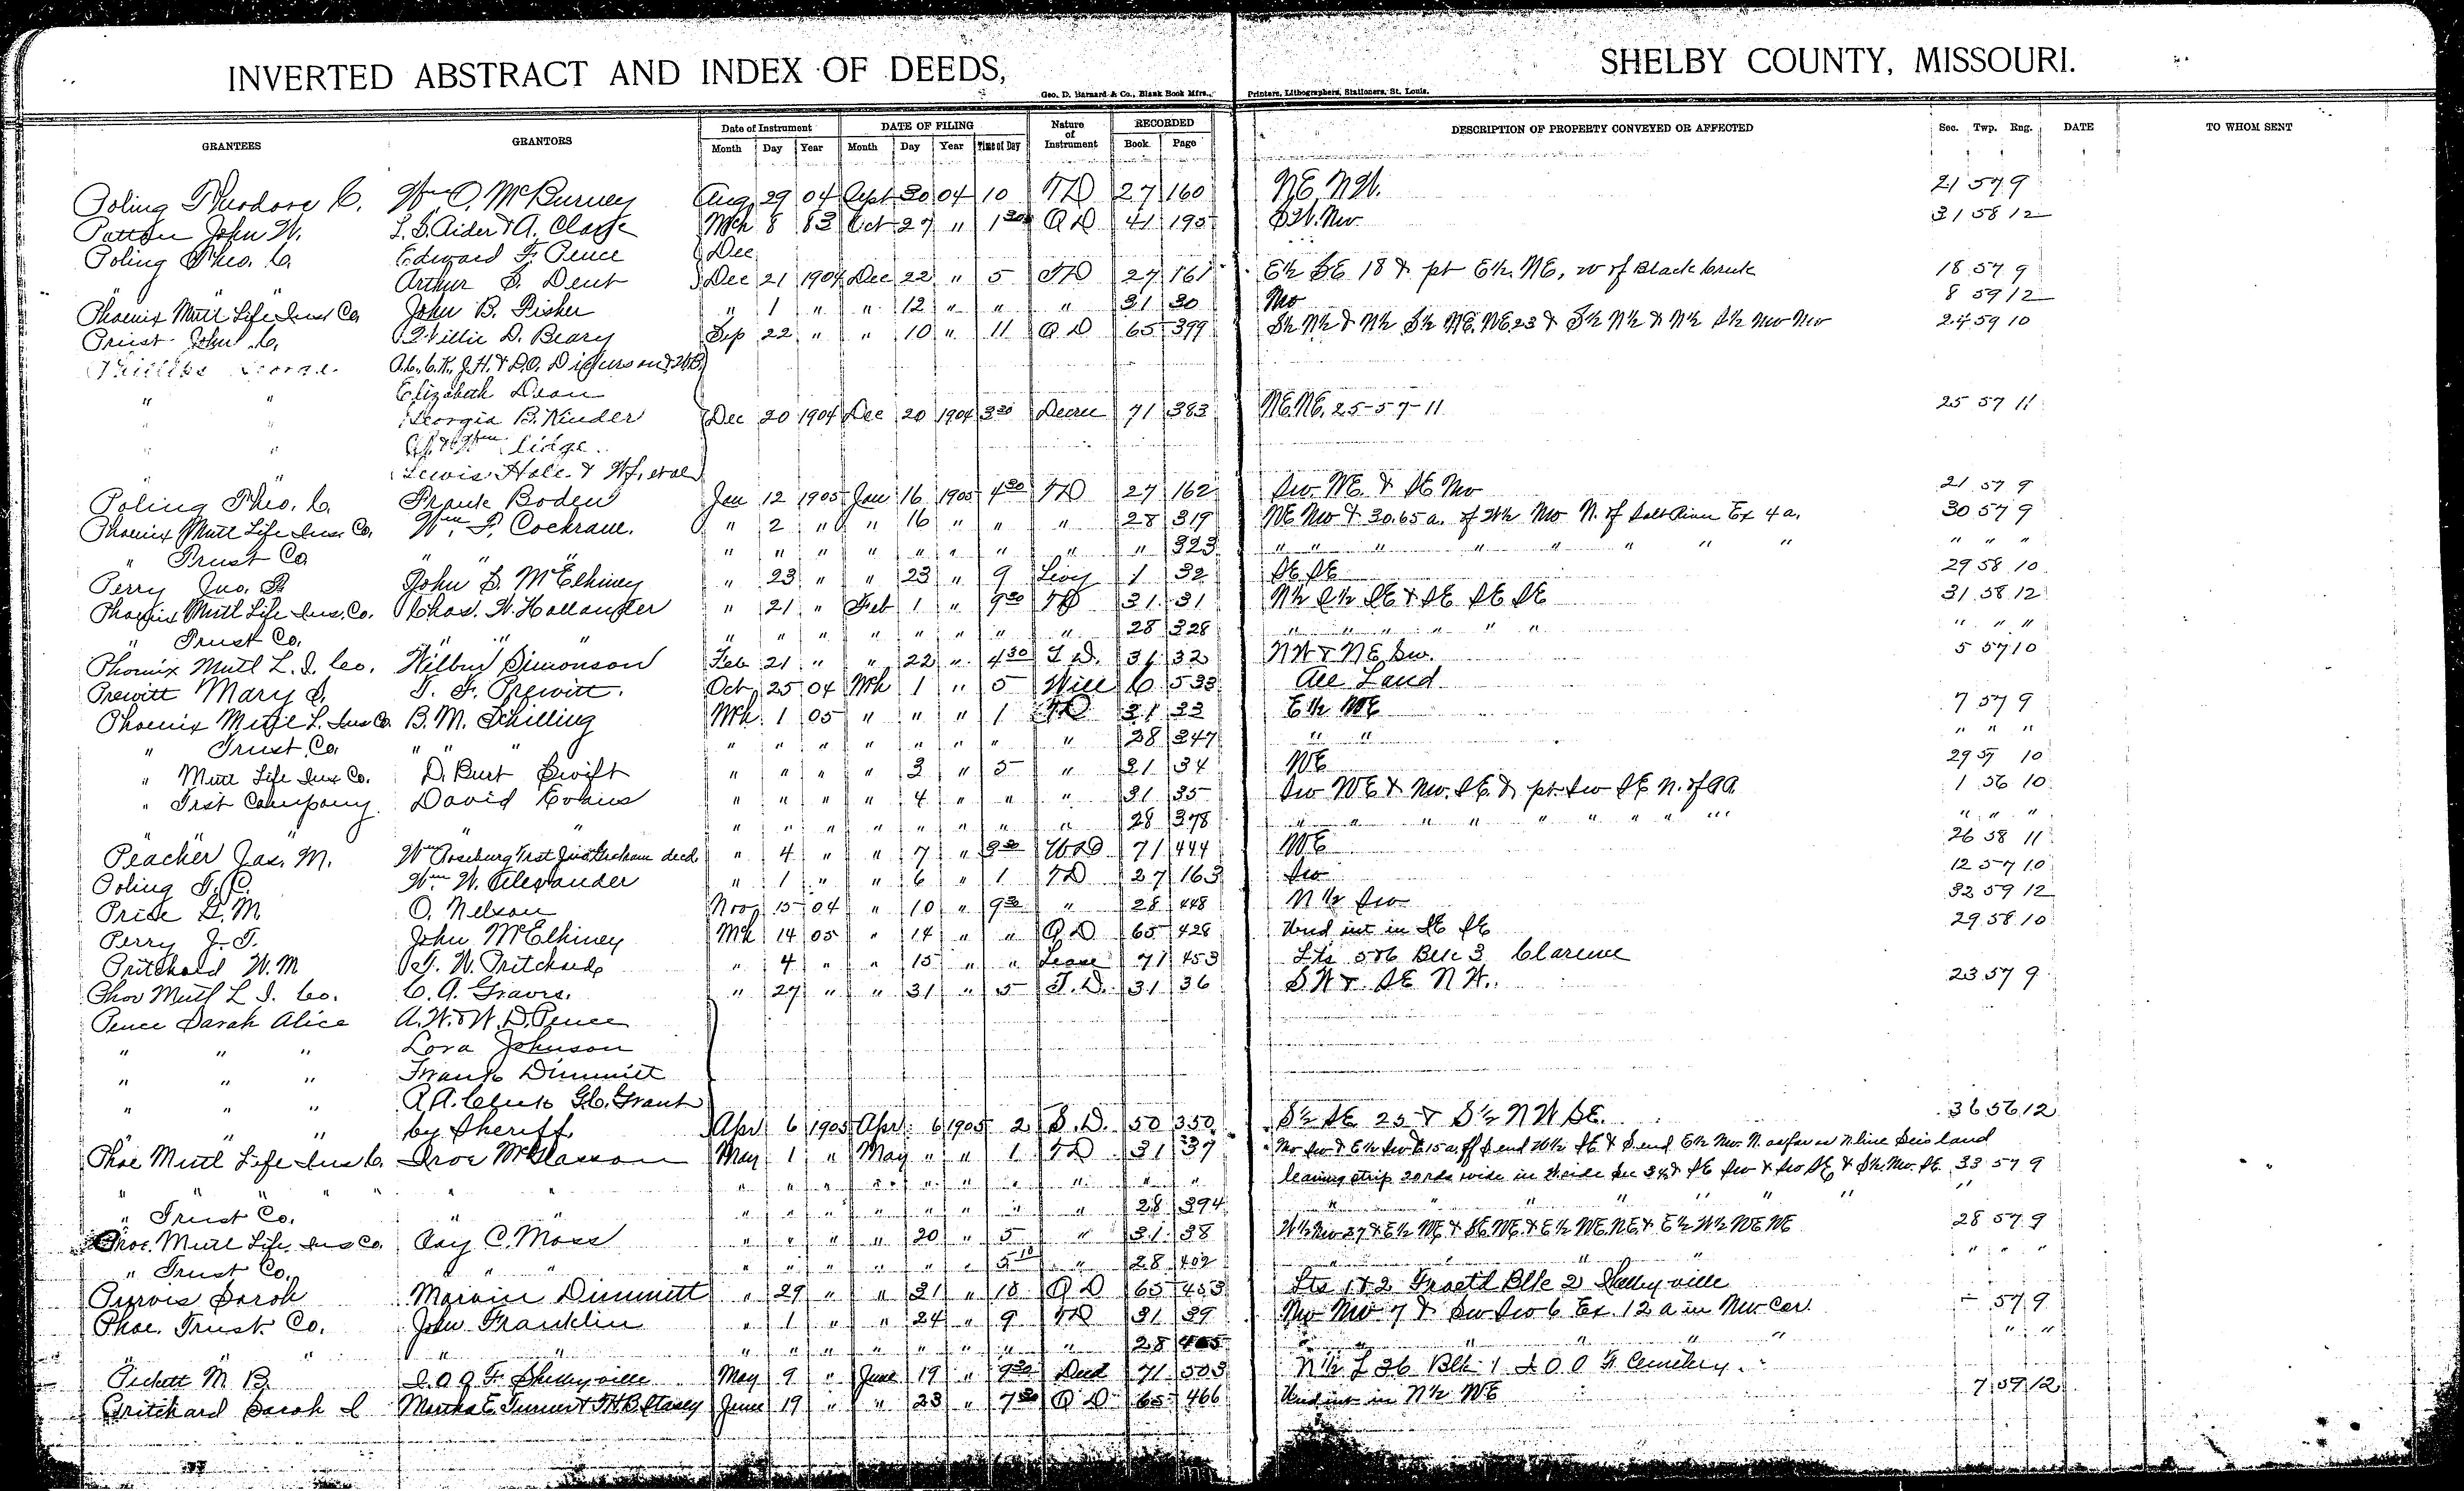 INVERTED ABSTRACT AND INDEX OF DEEDS, SHELBY COUNTY, MISSOURI.
Geo. D. Barnard & Co., Blank Book Mfrs., Printers, Lithographers, Stationers, St. Louis.
GRANTEES GRANTORS Date of Instrument DATE OF FILING Nature of Instrument RECORDED DESCRIPTION OF PROPERTY CONVEYED OR AFFECTED Sec. Twp. Rng. DATE TO WHOM SENT
Month Day Year Month Day Year Time of Day Book Page
Poling Theodore C. Wm O. McBurney Aug 29 04 Sept 30 04 10 TD 27 160 NE NW. 21 57 9
Patton John W. Mch 8 83 Oct 27 " 1 30 Q D 41 195 SW. Nw. 31 58 12
Poling Theo. C. Edward F. Pence Dec
" " Arthur S. Dent Dec 21 1904 Dec 22 " 5 TD 27 161 E½ SE 18 & pt E½ NE, w of Black Creek 18 57 9
Phoenix Mutl Life Ins Co John B. Fisher " 1 " " 12 " " " 31 30 Nw 8 59 12
Priest John C. Willie D. Beary Sep 22 " " 10 " 11 Q D 65 399 S½ N½ & N½ S½ NE. NE 23 & S½ N½ & N½ S½ Nw Nw 24 59 10
Phillips George
" " Elizabeth Dean
" " Georgia B. Kinder Dec 20 1904 Dec 20 1904 3 30 Decree 71 383 NE. NE. 25-57-11 25 57 11
" "
" " Lewis Hale & Wf, et al
Poling Theo. C. Frank Boden Jan 12 1905 Jan 16 1905 4 30 TD 27 162 Sw. NE. & SE Nw 21 57 9
Phoenix Mutl Life Ins. Co. Wm. F. Cochrane. " 2 " " 16 " " " 28 319 NE Nw & 30.65 a. of W½ Nw N. of Salt River Ex 4 a. 30 57 9
" Trust Co. " " " " " " " " " " " 323 " " " " " " " " " " "
Perry Jno. T. John S. McElhiney " 23 " " 23 " 9 Levy 1 32 SE SE 29 58 10
Phoenix Mutl Life Ins. Co. Chas. W. Hollander " 21 " Feb 1 " 9 30 TD 31 31 N½ S½ SE & SE SE SE 31 58 12
" Trust Co. " " " " " " " " " " " 28 328 " " " " " " " " "
Phoenix Mutl L. I. Co. Wilbur Simonson Feb 21 " " 22 " 4 30 T D. 31 32 NW & NE Sw. 5 57 10
Prewitt Mary S. T. F. Prewitt. Oct 25 04 Mch 1 " 5 Will C 533 All Land
Phoenix Mutl L. Ins Co. B. M. Schilling Mch. 1 05 " " " 1 TD 31 33 E½ NE 7 57 9
" Trust Co. " " " " " " " " " " " 28 347 " " " " "
" Mutl Life Ins Co. D. Burt Swift " " " " 3 " 5 " 31 34 NE 29 57 10
" Trst Company David Evans " " " " 4 " " " 31 35 Sw NE & Nw. SE. & pt. Sw SE N. of RR. 1 56 10
" " " " " " " " " " " " 28 378 " " " " " " " " " " "
Peacher Jas. M. " 4 " " 7 " 3 30 71 444 NE 26 58 11
Poling T. C. Wm W. Alexander " 1 " " 6 " 1 TD 27 163 Sw 12 57 10
Price G. M. O. Nelson Nov 15 04 " 10 " 9 30 " 28 448 N½ Sw 32 59 12
Perry J. T. John McElhiney Mch 14 05 " 14 " " Q D 65 428 Und int in SE SE 29 58 10
Pritchard W. M T. W. Pritchard " 4 " " 15 " " Lease 71 453 Lts 5&6 Blk 3 Clarence
Phoe Mutl L I. Co. C. A. Graves. " 27 " " 31 " 5 T. D. 31 36 SW & SE NW. 23 57 9
Pence Sarah Alice A. W. & W. D. Pence
" " " Lora Johnson
" " " Frank Dimmitt
" " "
" " " by Sheriff Apr 6 1905 Apr. 6 1905 2 S. D. 50 350 S½ SE 25 & S½ NW SE. 36 56 12
Phoe Mutl Life Ins Co. May 1 " May " " 1 TD 31 37
" " " " " " " " " " " " " leaving strip 20 rds wide in 33 57 9
" Trust Co. " " " " " " " " " " 28 394 " " " " "
Phoe. Mutl Life Ins Co. Ray C. Moss " " " " 20 " 5 " 31 38 W½ Nw 27 & E½ NE & SE NE. & E½ NE. NE & E½ W½ NE NE 28 57 9
" Trust Co. " " " " " " " " 5 10 " 28 402 " " " " " "
Purvis Sarah Marvin Dimmitt " 29 " " 31 " 10 Q D 65 453 Lts 1 & 2 Fractl Blk 2 Shelbyville
Phoe. Trust Co. John Franklin " 1 " " 24 " 9 TD 31 39 Nw Nw 7 & Sw Sw 6 Ex. 12 a in Nw Cor. - 57 9
" " " " " " " " " " " " 28 405 " " " " " "
Pickett M. B. I. O. O. F. Shelbyville May 9 " June 19 " 9 30 Deed 71 503 N½ L 36 Blk 1 I O O F. Cemetery.
Pritchard Sarah E June 19 " " 23 " 7 30 Q D 65 466 Und int in N½ NE 7 59 12